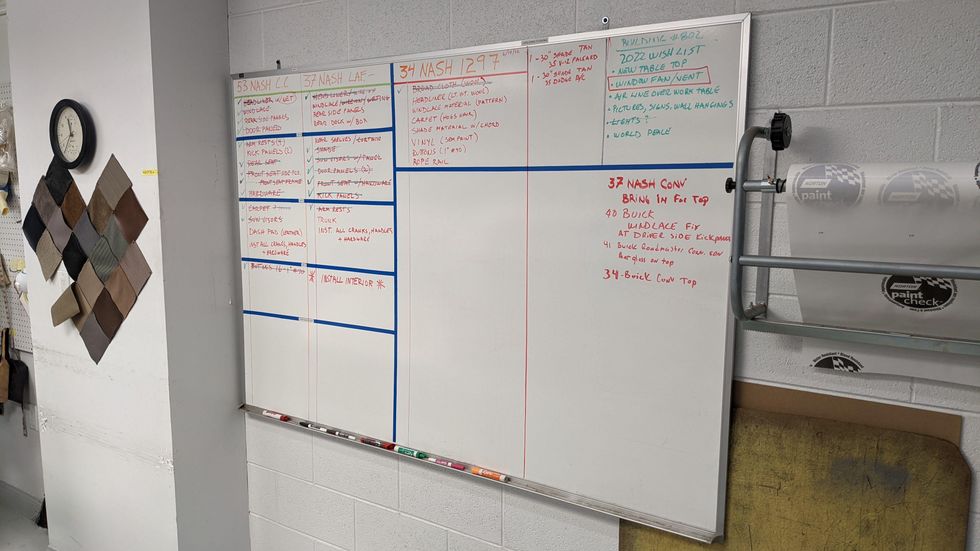 53 NASH C.C
HEADLINER (W/NET)
WINDLACE
REAR SIDE PANELS
DOOR PANELS
ARM RESTS (4)
KICK PANELS (2)
SEAT
FRONT SEAT
FRONT SEAT FRAME
HARDWARE
CARPET
SUN VISORS
DASH PAD (LEATHER)
INSTALL CRANKS, HANDLES
+ HARDWARE
BUTTONS
37 NASH LAF-
HEADLINER
WINDLACE
REAR SIDE PANELS
REAR DECK w/ BOX
REAR SHELVES / CURTAINS
SHADE
SUN VISORS w/
DOOR PANELS (2)
FRONT SEAT w/ HARDWARE
KICK PANELS
ARM RESTS
TRUCK
INST. ALL CRANKS, HANDLES
+ HARDWARE
* INSTALL INTERIOR *
34 NASH 1297
BROAD CLOTH (WOOL)
HEADLINER (LT. WT. WOOL)
WINDLACE MATERIAL (PATTERN)
CARPET (HOGS HAIR)
SHADE MATERIAL w/CHORD
VINYL (SEM PAINT)
BUTTONS (1" #40)
ROPE RAIL
1 - 30" SHADE TAN
35 V-12 PACKARD
1 - 30" SHADE TAN
35 DODGE
BUILDING #802
2022 WISH LIST
• NEW TABLE TOP
• WINDOW FAN/VENT
• AIR LINE OVER WORK TABLE
• PICTURES, SIGNS, WALL HANGINGS
• LIGHTS ?
• WORLD PEACE
37 NASH CONV
BRING IN FOR TOP
40 BUICK
WINDLACE FIX
AT DRIVER SIDE KICKPANEL
41 Buick Roadmaster Conv.
on top
34 - Buick Conv Top
NORTON
paint
NORTON
paint
check